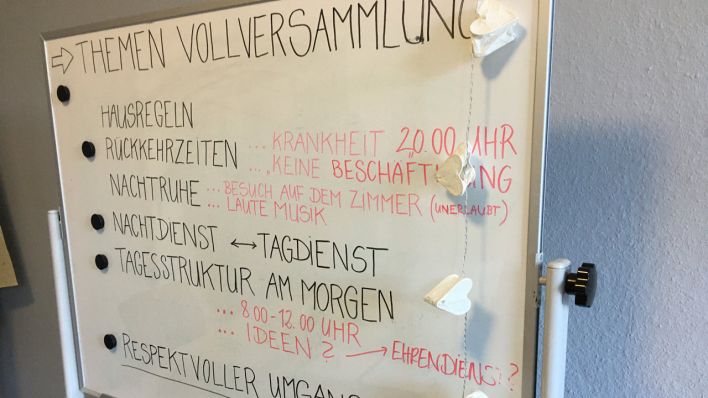 ⇨ THEMEN VOLLVERSAMMLUNG
HAUSREGELN
RÜCKKEHRZEITEN ... KRANKHEIT 20.00 UHR
... KEINE BESCHÄFTIGUNG
NACHTRUHE ... BESUCH AUF DEM ZIMMER (UNERLAUBT)
... LAUTE MUSIK
NACHTDIENST ↔ TAGDIENST
TAGESSTRUKTUR AM MORGEN
... 8.00-12.00 UHR
... IDEEN ? → EHRENDIENST ?
RESPEKTVOLLER UMGANG